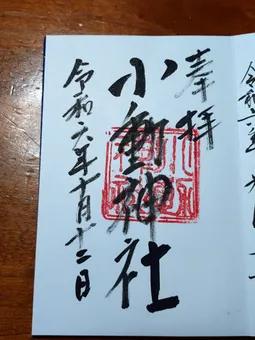 奉拝
小動神社
令和六年十月十二日